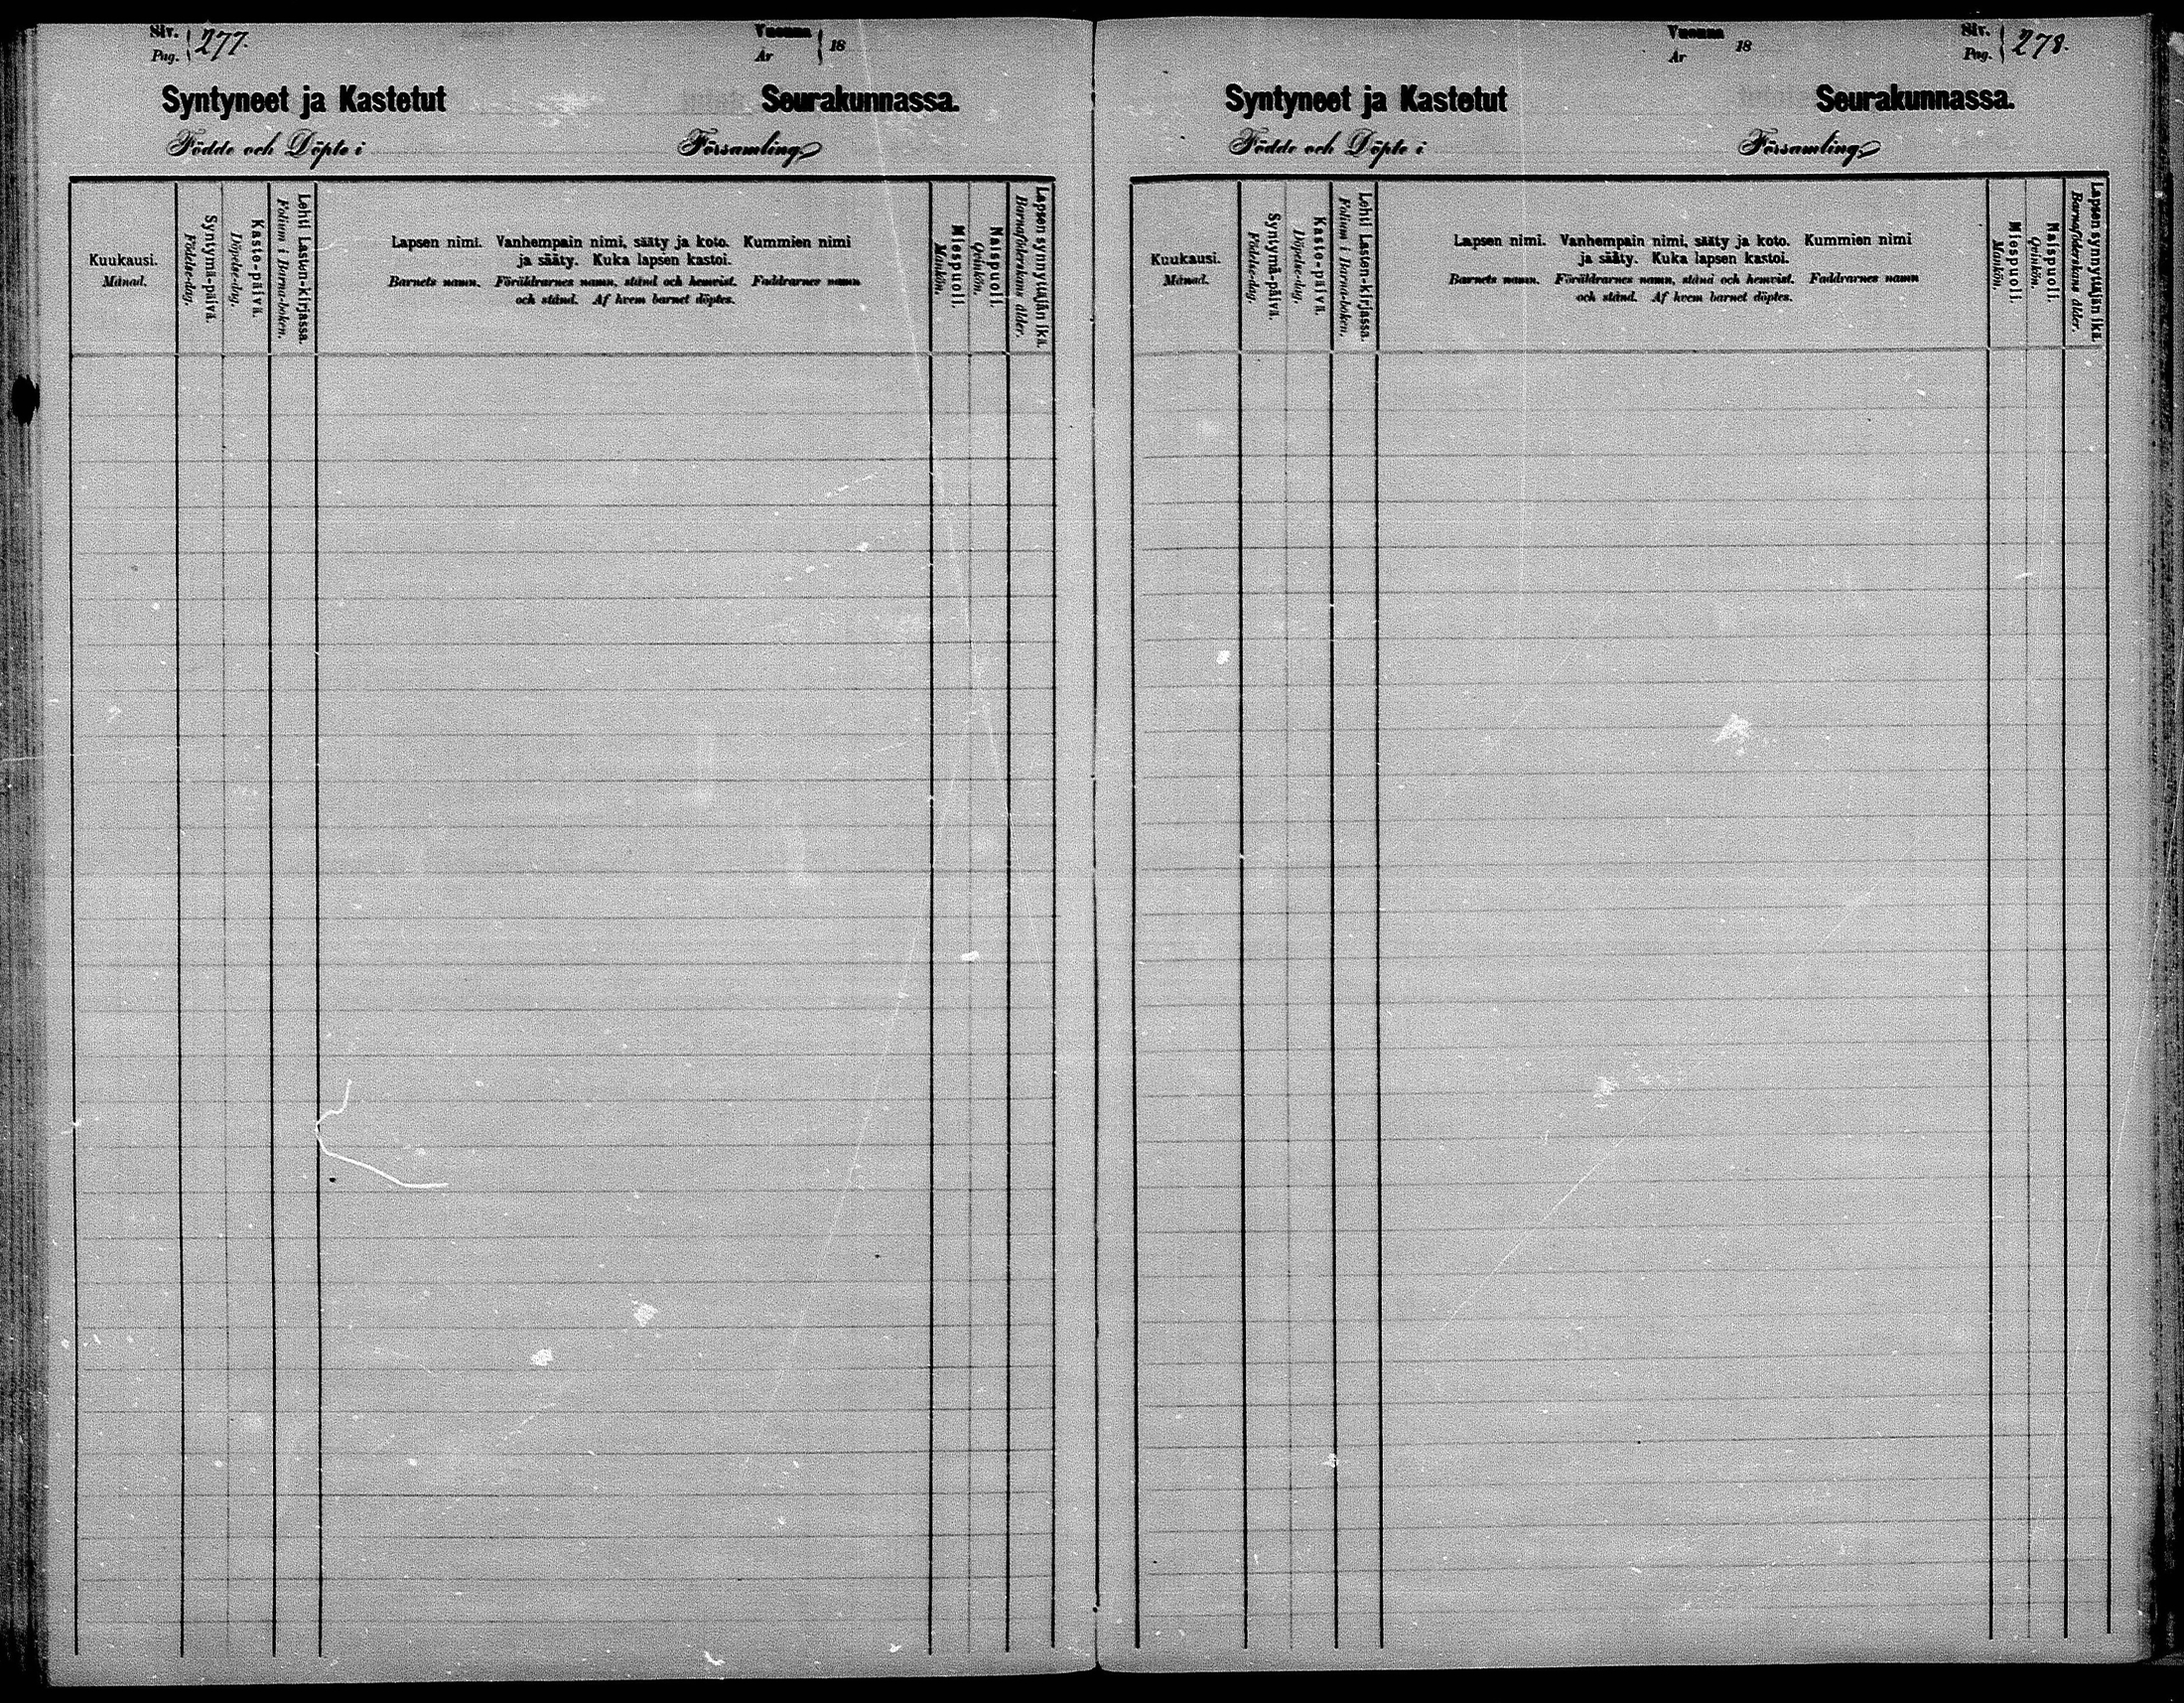 Siv. Pag. 277.
Vuonna År 18
Syntyneet ja Kastetut Seurakunnassa.
Födde och Döpte i Församling.
Kuukausi.
Månad.
Syntymä-päivä.
Födelse-dag.
Kaste-päivä.
Döpelse-dag.
Lehti Lasten-kirjassa.
Folium i Barna-boken.
Lapsen nimi. Vanhempain nimi, sääty ja koto. Kummien nimi
ja sääty. Kuka lapsen kastoi.
Barnets namn. Föräldrarnes namn, stånd och hemvist. Faddrarnes namn
och stånd. Af hvem barnet döptes.
Miespuoli.
Mankön.
Naispuoli.
Qvinkön.
Lapsen synnyttäjän ikä.
Barnaföderskans ålder.
Vuonna År 18
Siv. Pag. 278.
Syntyneet ja Kastetut Seurakunnassa.
Födde och Döpte i Församling.
Kuukausi.
Månad.
Syntymä-päivä.
Födelse-dag.
Kaste-päivä.
Döpelse-dag.
Lehti Lasten-kirjassa.
Folium i Barna-boken.
Lapsen nimi. Vanhempain nimi, sääty ja koto. Kummien nimi
ja sääty. Kuka lapsen kastoi.
Barnets namn. Föräldrarnes namn, stånd och hemvist. Faddrarnes namn
och stånd. Af hvem barnet döptes.
Miespuoli.
Mankön.
Naispuoli.
Qvinkön.
Lapsen synnyttäjän ikä.
Barnaföderskans ålder.